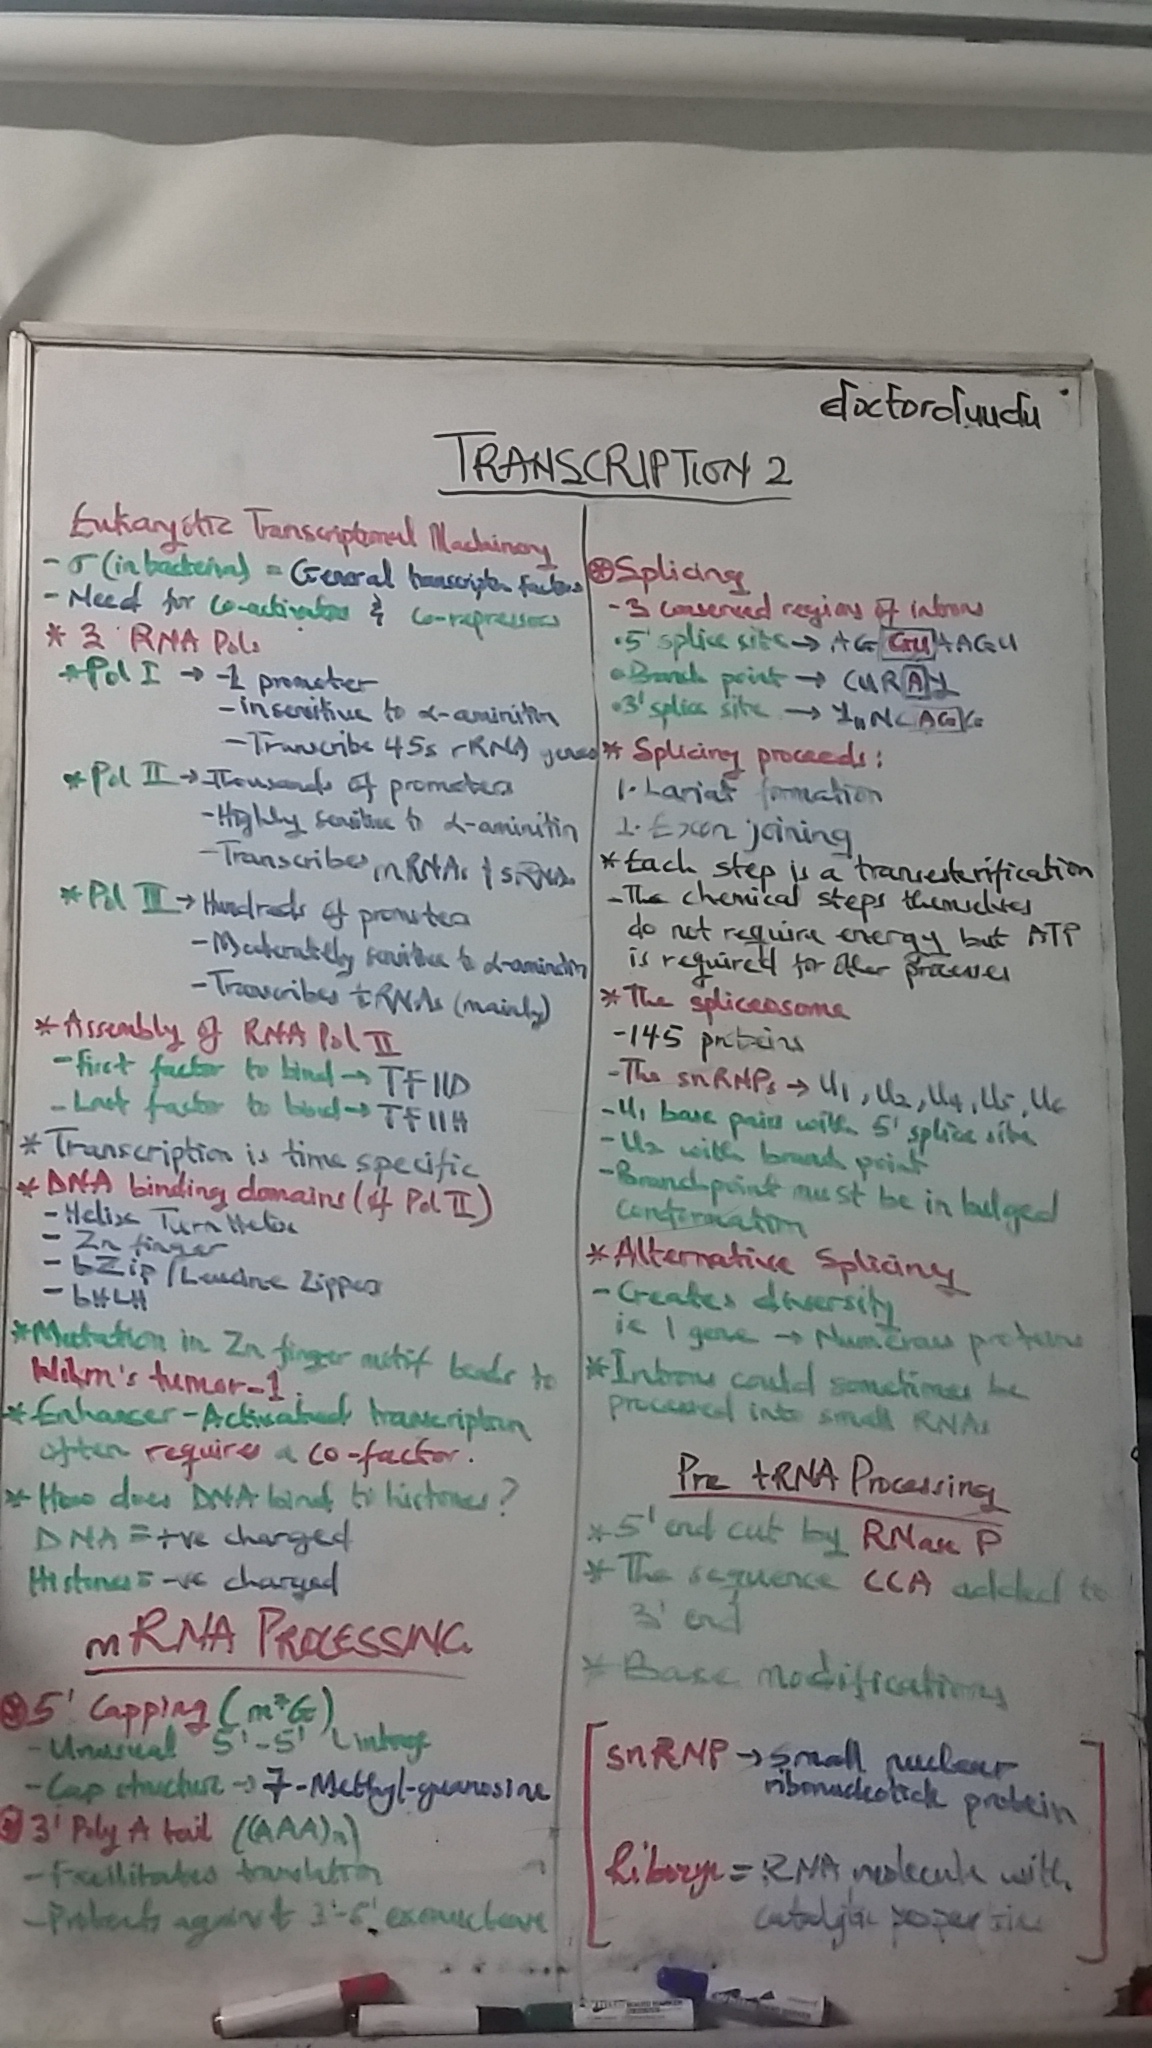 doctordudu.
TRANSCRIPTION 2
Eukaryotic Transcriptional Machinery
- σ (in bacteria) = General transcription factors
- Need for co-activators & co-repressors
* 3 RNA Pols
* Pol I → 1 promoter
- insensitive to α-amanitin
- Transcribe 45s rRNA genes
* Pol II → Thousands of promoters
- Highly sensitive to α-amanitin
- Transcribes mRNAs & sRNAs
* Pol III → Hundreds of promoters
- Moderately sensitive to α-amanitin
- Transcribes tRNAs (mainly)
* Assembly of RNA Pol II
- First factor to bind → TFIID
- Last factor to bind → TFIIH
* Transcription is time specific
* DNA binding domains (of Pol II)
- Helix Turn Helix
- Zn finger
- bZip / Leucine Zipper
- bHLH
* Mutation in Zn finger motif leads to
Wilm's tumor-1
* Enhancer-Activated transcription
often requires a co-factor.
* How does DNA bind to histones?
DNA = +ve charged
Histones = -ve charged
mRNA PROCESSING
⊛ 5' Capping (m7G)
- Unusual 5'-5' linkage
- Cap structure → 7-Methyl-guanosine
⊛ 3' Poly A tail ((AAA)n)
- Facilitates translation
- Protects against 3'-5' exonuclease
⊛ Splicing
- 3 conserved regions of introns
• 5' splice site → AG GU AAGU
• Branch point → CURAY
• 3' splice site → YnNCAGG
* Splicing proceeds:
1. Lariat formation
2. Exon joining
* Each step is a transesterification
- The chemical steps themselves
do not require energy but ATP
is required for other processes
* The spliceosome
- 145 proteins
- The snRNPs → U1, U2, U4, U5, U6
- U1 base pairs with 5' splice site
- U2 with branch point
- Branch point must be in bulged
conformation
* Alternative Splicing
- Creates diversity
ie 1 gene → Numerous proteins
* Introns could sometimes be
processed into small RNAs
Pre tRNA Processing
* 5' end cut by RNase P
* The sequence CCA added to
3' end
* Base modifications
snRNP → Small nuclear
ribonucleotide protein
Ribozyme = RNA molecule with
catalytic properties